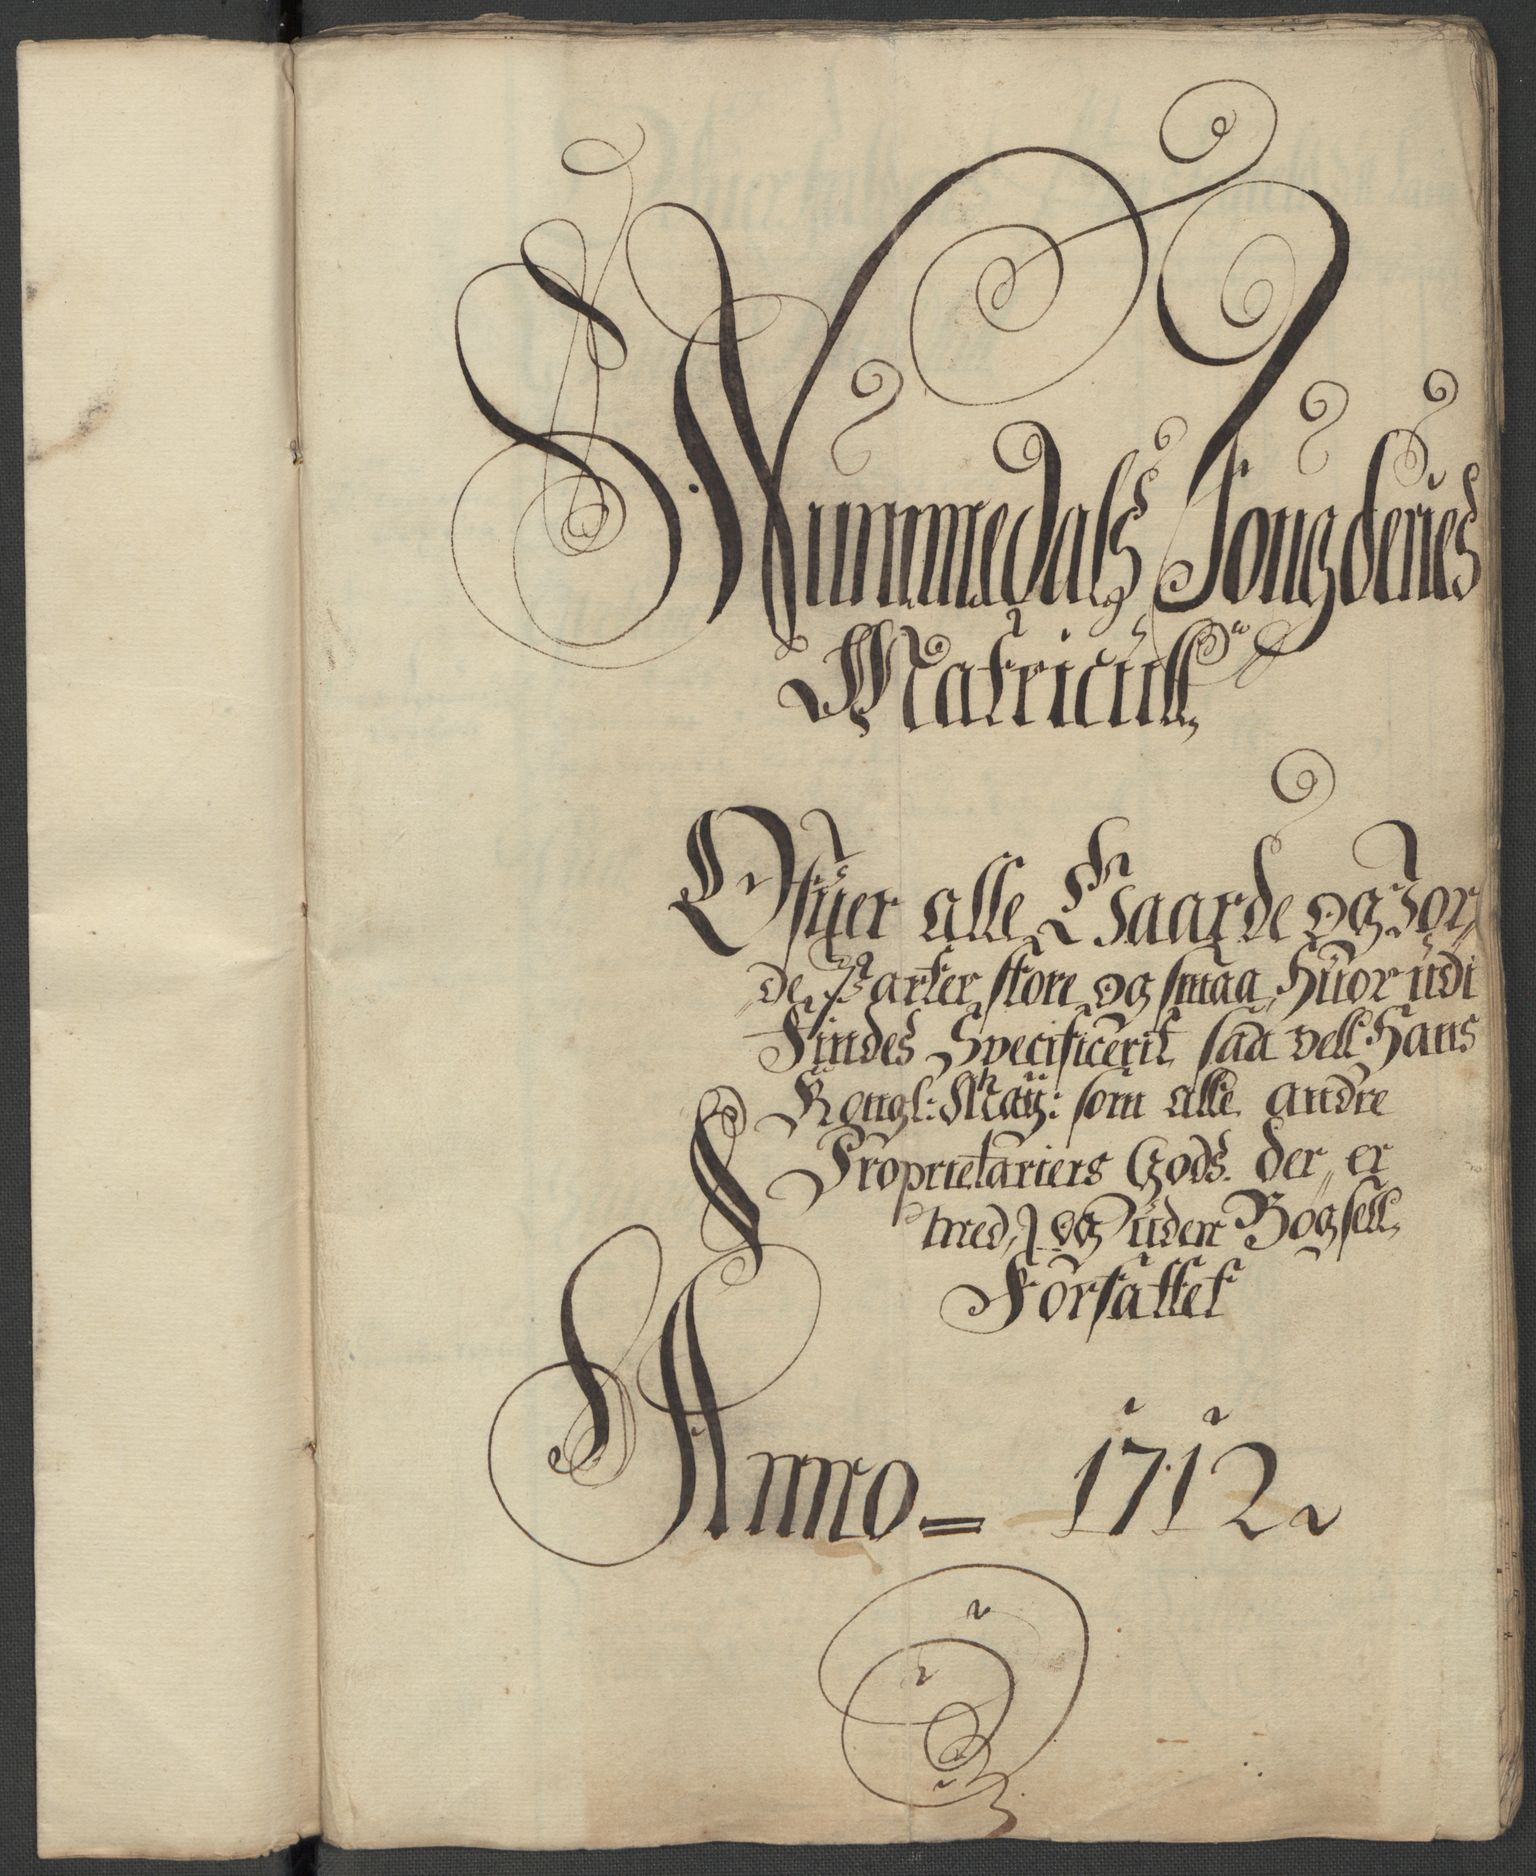 Nummedals Fougderies
Matricull
Ofuer alle Gaarde og Jor,,
de Parter store og smaa, Huor udi
Findes Specificerit saa vell Hans
Kongl: May: som alle andre
Proprietariers Gods. der er
med, og uden Bøgsell,
Forfattet
Anno = 1712